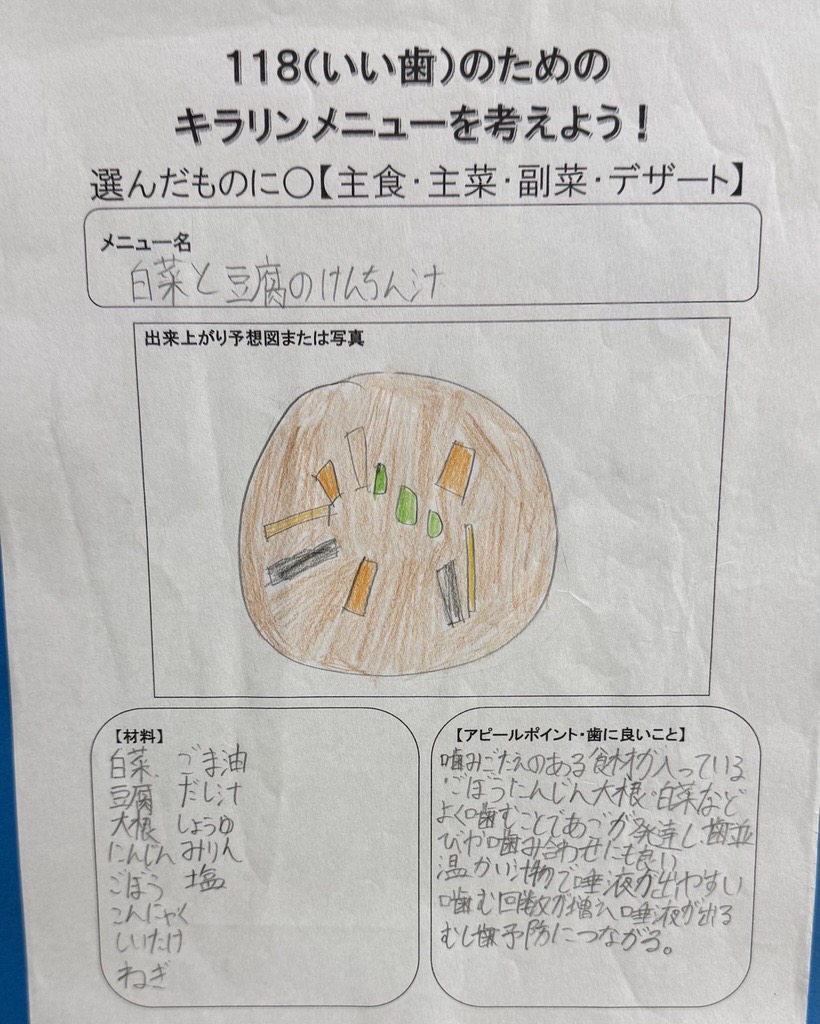 118(いい歯)のための
キラリンメニューを考えよう!
選んだものに○【主食・主菜・副菜・デザート】
メニュー名
白菜と豆腐のけんちん汁
出来上がり予想図または写真
【材料】
白菜 ごま油
豆腐 だし汁
大根 しょうゆ
にんじん みりん
ごぼう 塩
こんにゃく
しいたけ
ねぎ
【アピールポイント・歯に良いこと】
噛みごたえのある食材が入っている
・ごぼうたんじん大根・白菜など
よく噛むことであごが発達し歯並
びや噛み合わせにも良い
温かい汁物で唾液が出やすい
噛む回数が増え唾液が出る
むし歯予防につながる。